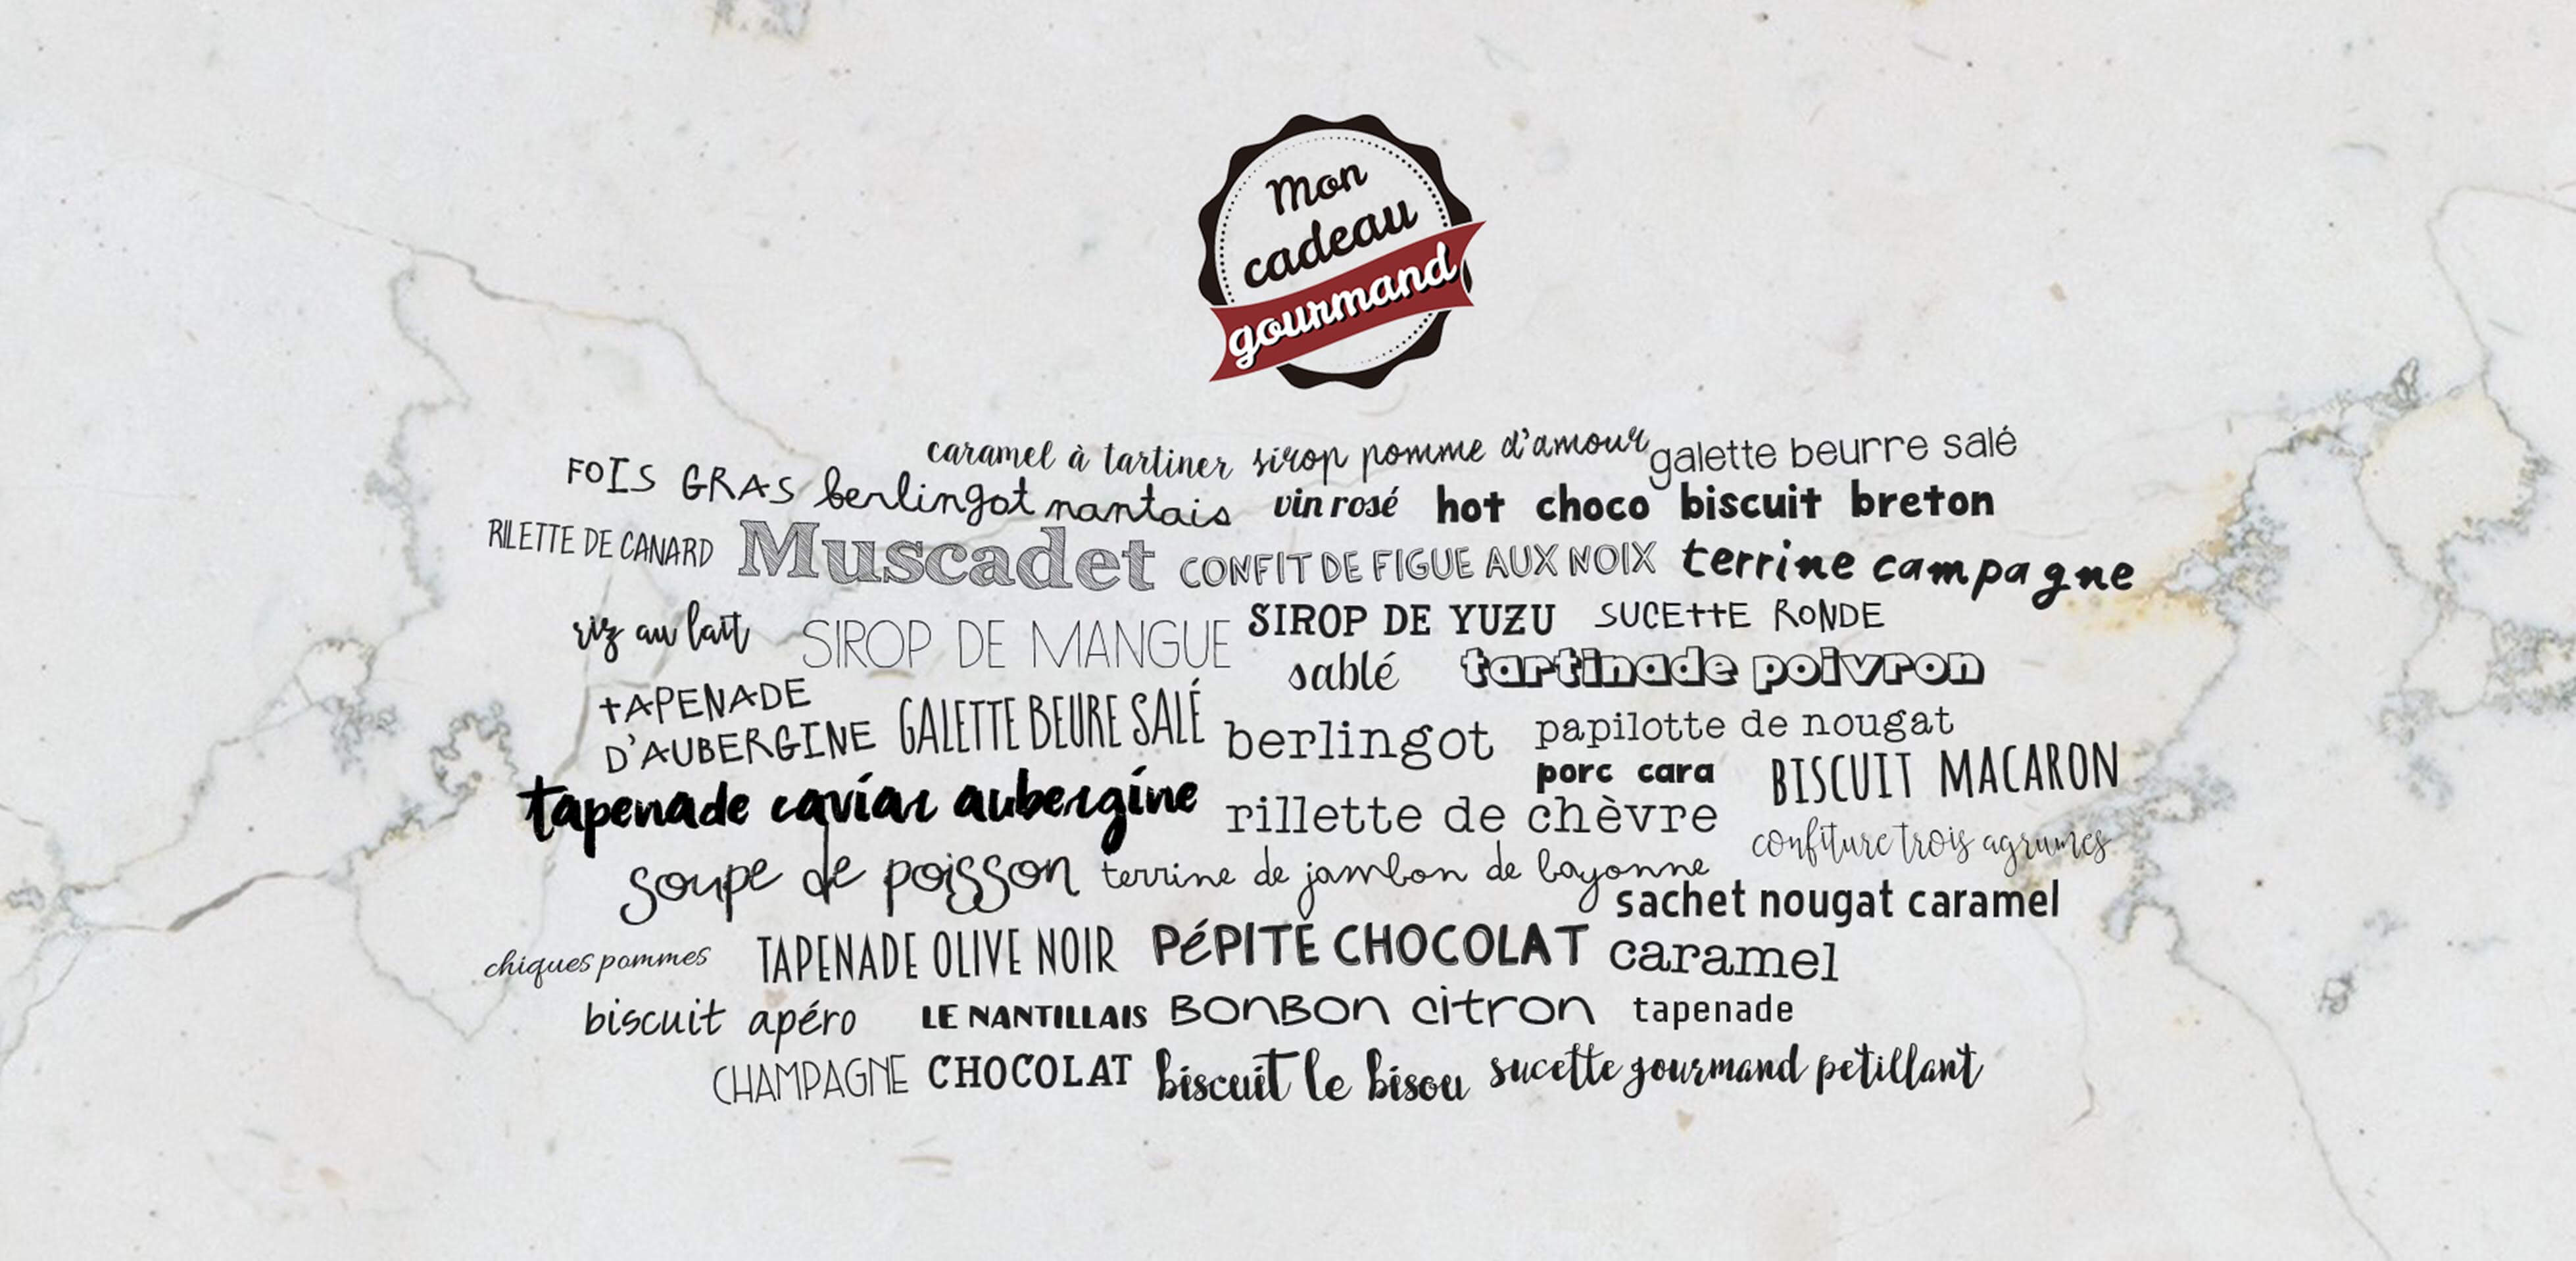 Mon
cadeau
gourmand
caramel à tartiner sirop pomme d'amour galette beurre salé
FOIS GRAS berlingot nantais vin rosé hot choco biscuit breton
RILETTE DE CANARD Muscadet CONFIT DE FIGUE AUX NOIX terrine campagne
riz au lait SIROP DE MANGUE SIROP DE YUZU SUCETTE RONDE
sablé tartinade poivron
TAPENADE
D'AUBERGINE GALETTE BEURE SALÉ berlingot papilotte de nougat
porc cara BISCUIT MACARON
tapenade caviar aubergine rillette de chèvre
confiture trois agrumes
soupe de poisson terrine de jambon de bayonne
sachet nougat caramel
chiques pommes TAPENADE OLIVE NOIR PéPITE CHOCOLAT caramel
biscuit apéro LE NANTILLAIS BONBON citron tapenade
CHAMPAGNE CHOCOLAT biscuit le bisou sucette gourmand petillant